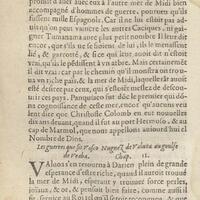 promit d'aller avec eux a l'autre mer de Midi bien
accompagné d'hommes de guerre, pourueu qu'ils
fussent mille Espagnols. Car il ne lui estoit pas ad-
uis qu'on peut vaincre les autres Caciques, ni gai-
gner Tumanama auec plus petit nombre. Il leur dit
encor, que s'ils ne se fioient de lui, ils le menassent
lié, & garroté, & s'ils
vray, qu'ils le pendissent à vn abre. Mais certainemēt
il dit vray, car par le chemin qu'il monstra on trou-
ua païs riche, & la mer de Midi, laquelle auoit
esté desirée par ceux, qui s'estoiēt meslez de descou-
urir ces païs. Panquiaco fut dōc le premier qui dō-
na cognoissance de celle mer, encor qu'aucuns veu-
lent dire que Christofle Colomb en eut nouuelles
dix ans deuant, quand il fut au port Hermoso, & au
cap de Marmol, que nous appellons auiourd'huy
Nombre de Dios.
Les guerres que fit Vasco Nugnez de Valuoa au golfe
de Vraba. Chap. II.
VAluoa s'en retourna à Darien plein de grande
esperance d'estre riche, quand il auroit trouué
la mer de Midi, esperant y trouuer force perles,
ioyaux, & or, & pensant bien faire, comme aussi il